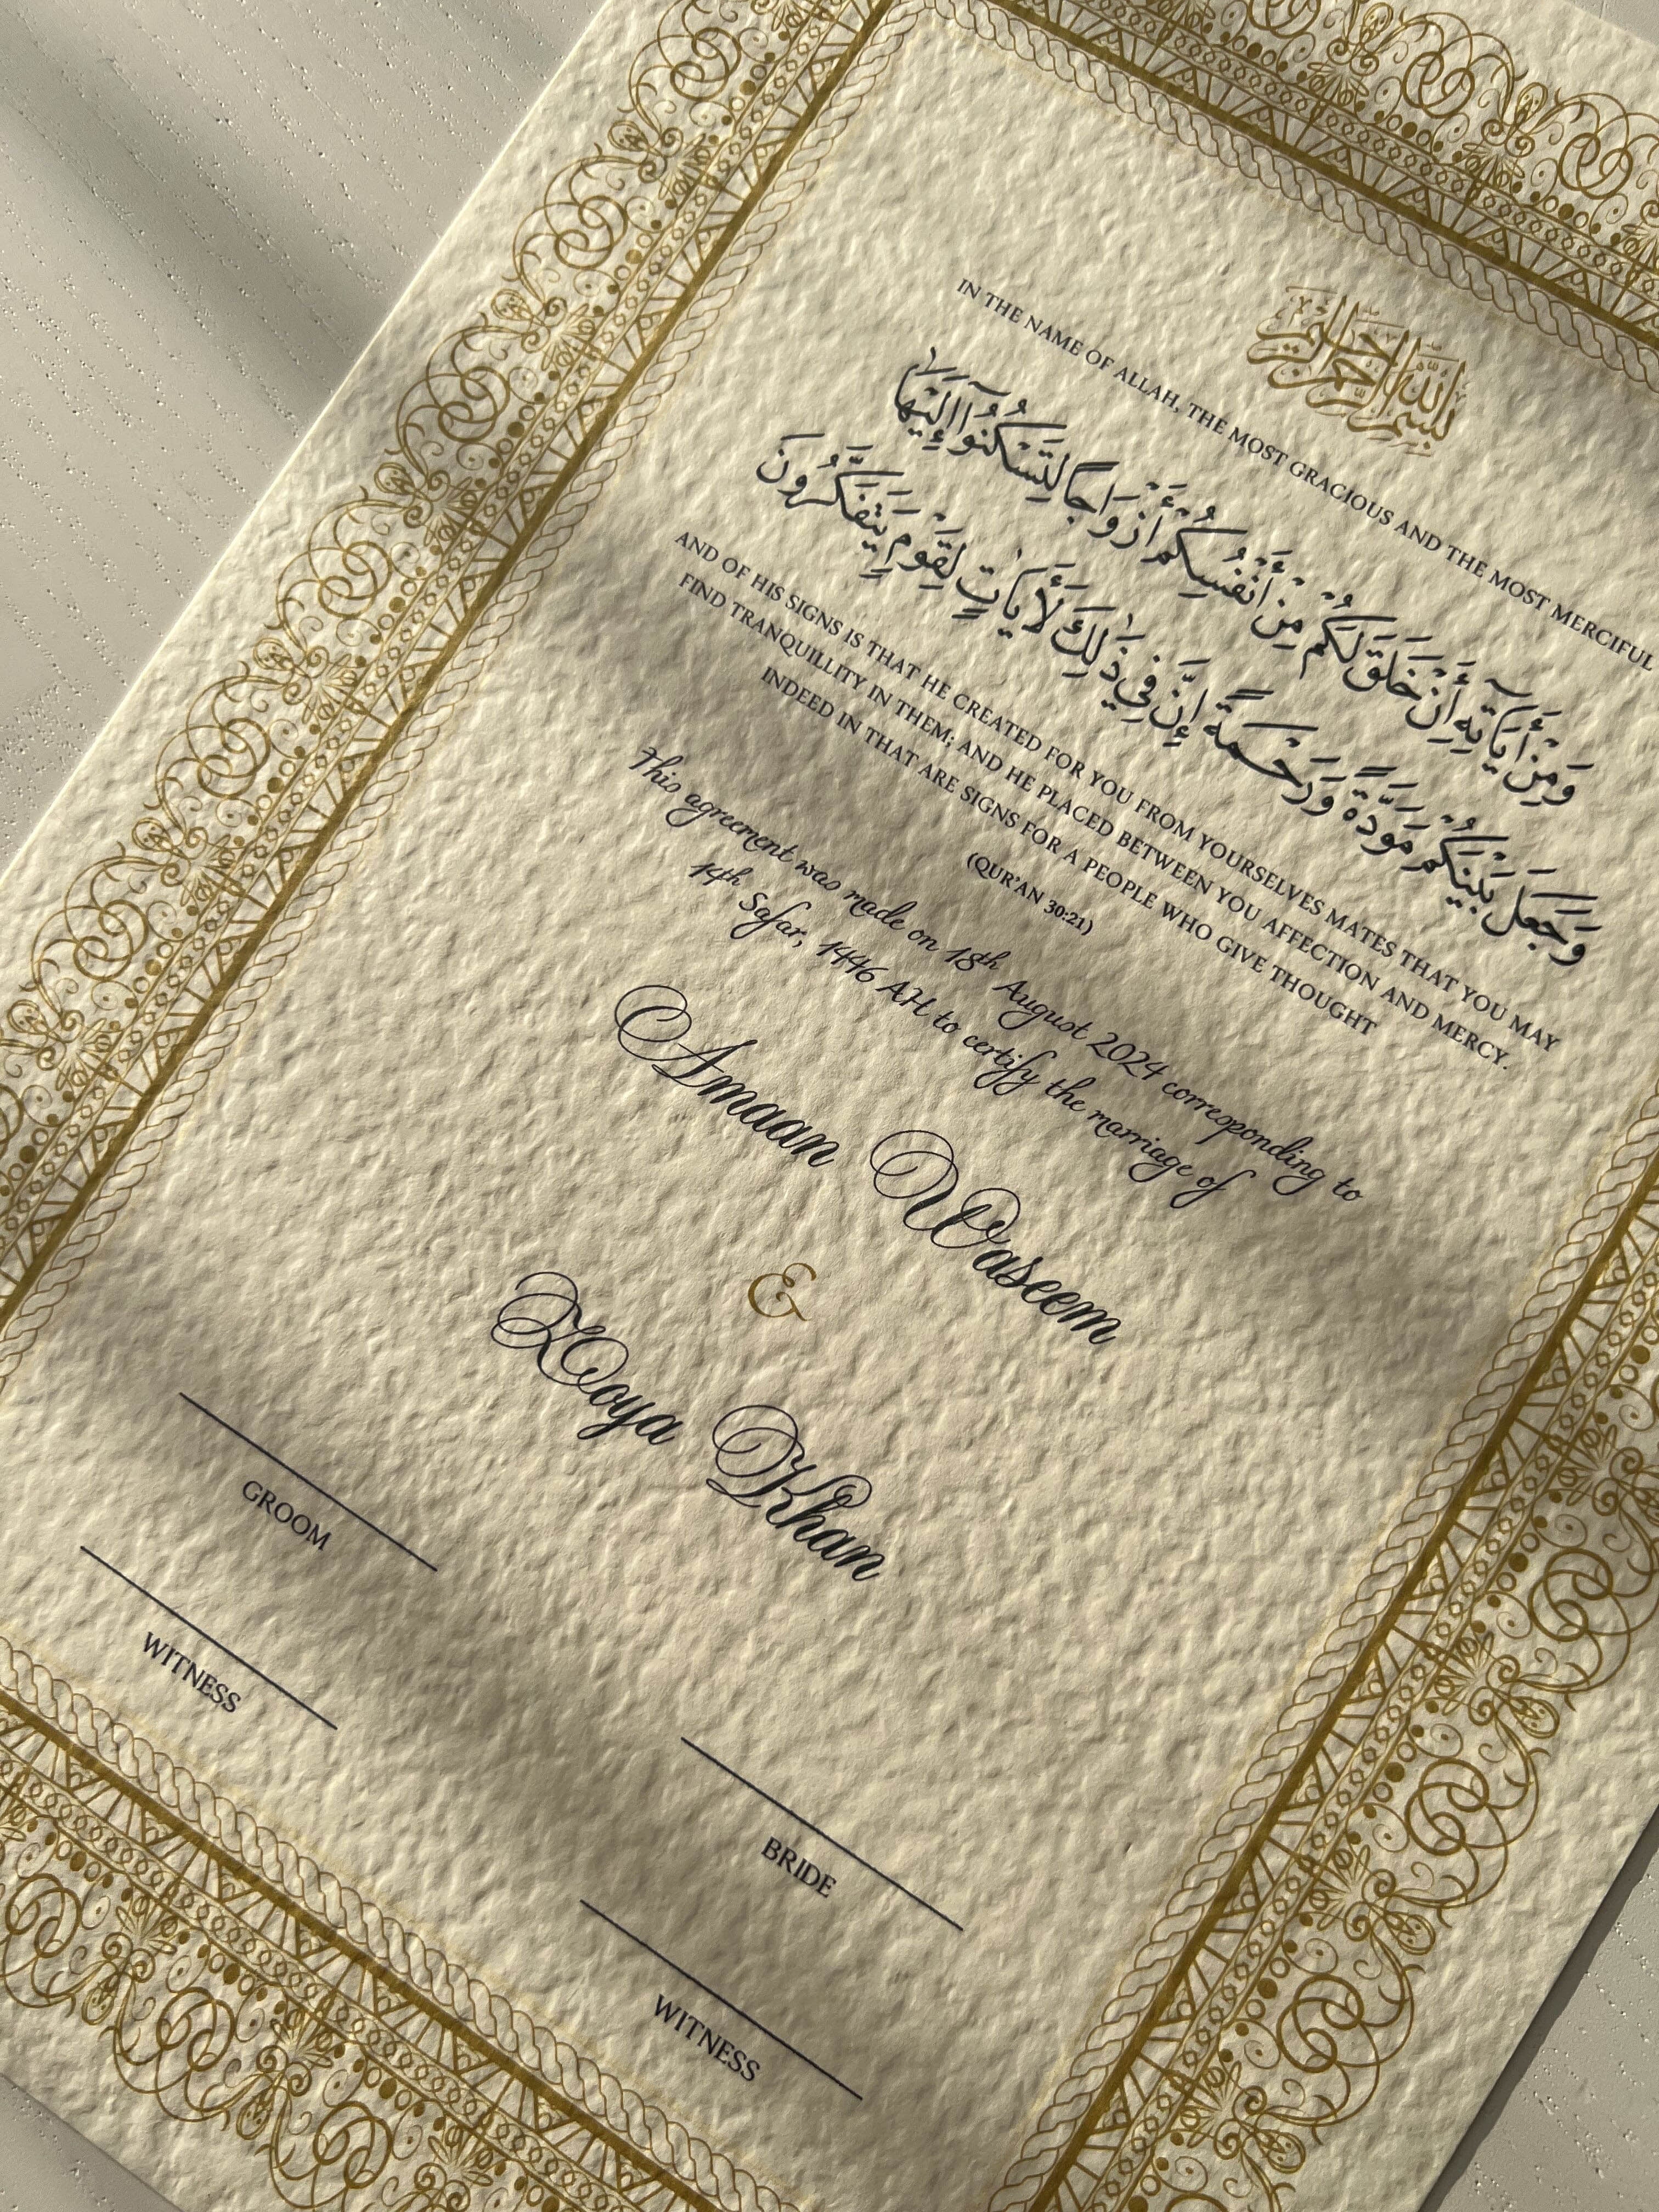 بسم الله الرحمن الرحيم
IN THE NAME OF ALLAH, THE MOST GRACIOUS AND THE MOST MERCIFUL
وَمِنْ أَيَاتِهِ أَنْ خَلَقَ لَكُمْ مِنْ أَنْفُسِكُمْ أَزْوَاجًا لِتَسْكُنُوآ إِلَيْهَا
وَجَعَلَ بَيْنَكُمْ مَوَدَّةً وَرَحْمَةً إِنَّ فِي ذَٰلِكَ لَأَيَاتٍ لِقَوْمٍ يَتَفَكَّرُونَ
AND OF HIS SIGNS IS THAT HE CREATED FOR YOU FROM YOURSELVES MATES THAT YOU MAY
FIND TRANQUILLITY IN THEM; AND HE PLACED BETWEEN YOU AFFECTION AND MERCY.
INDEED IN THAT ARE SIGNS FOR A PEOPLE WHO GIVE THOUGHT
(QUR'AN 30:21)
This agreement was made on 18th August 2024 correponding to
14th Safar, 1446 AH to certify the marriage of
Amaan Waseem
&
Zoya Khan
GROOM
BRIDE
WITNESS
WITNESS